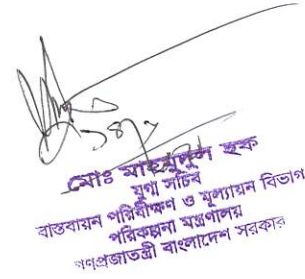 মোঃ মাহমুদুল হক
যুগ্ম সচিব
বাস্তবায়ন পরিবীক্ষণ ও মূল্যায়ন বিভাগ
পরিকল্পনা মন্ত্রণালয়
গণপ্রজাতন্ত্রী বাংলাদেশ সরকার